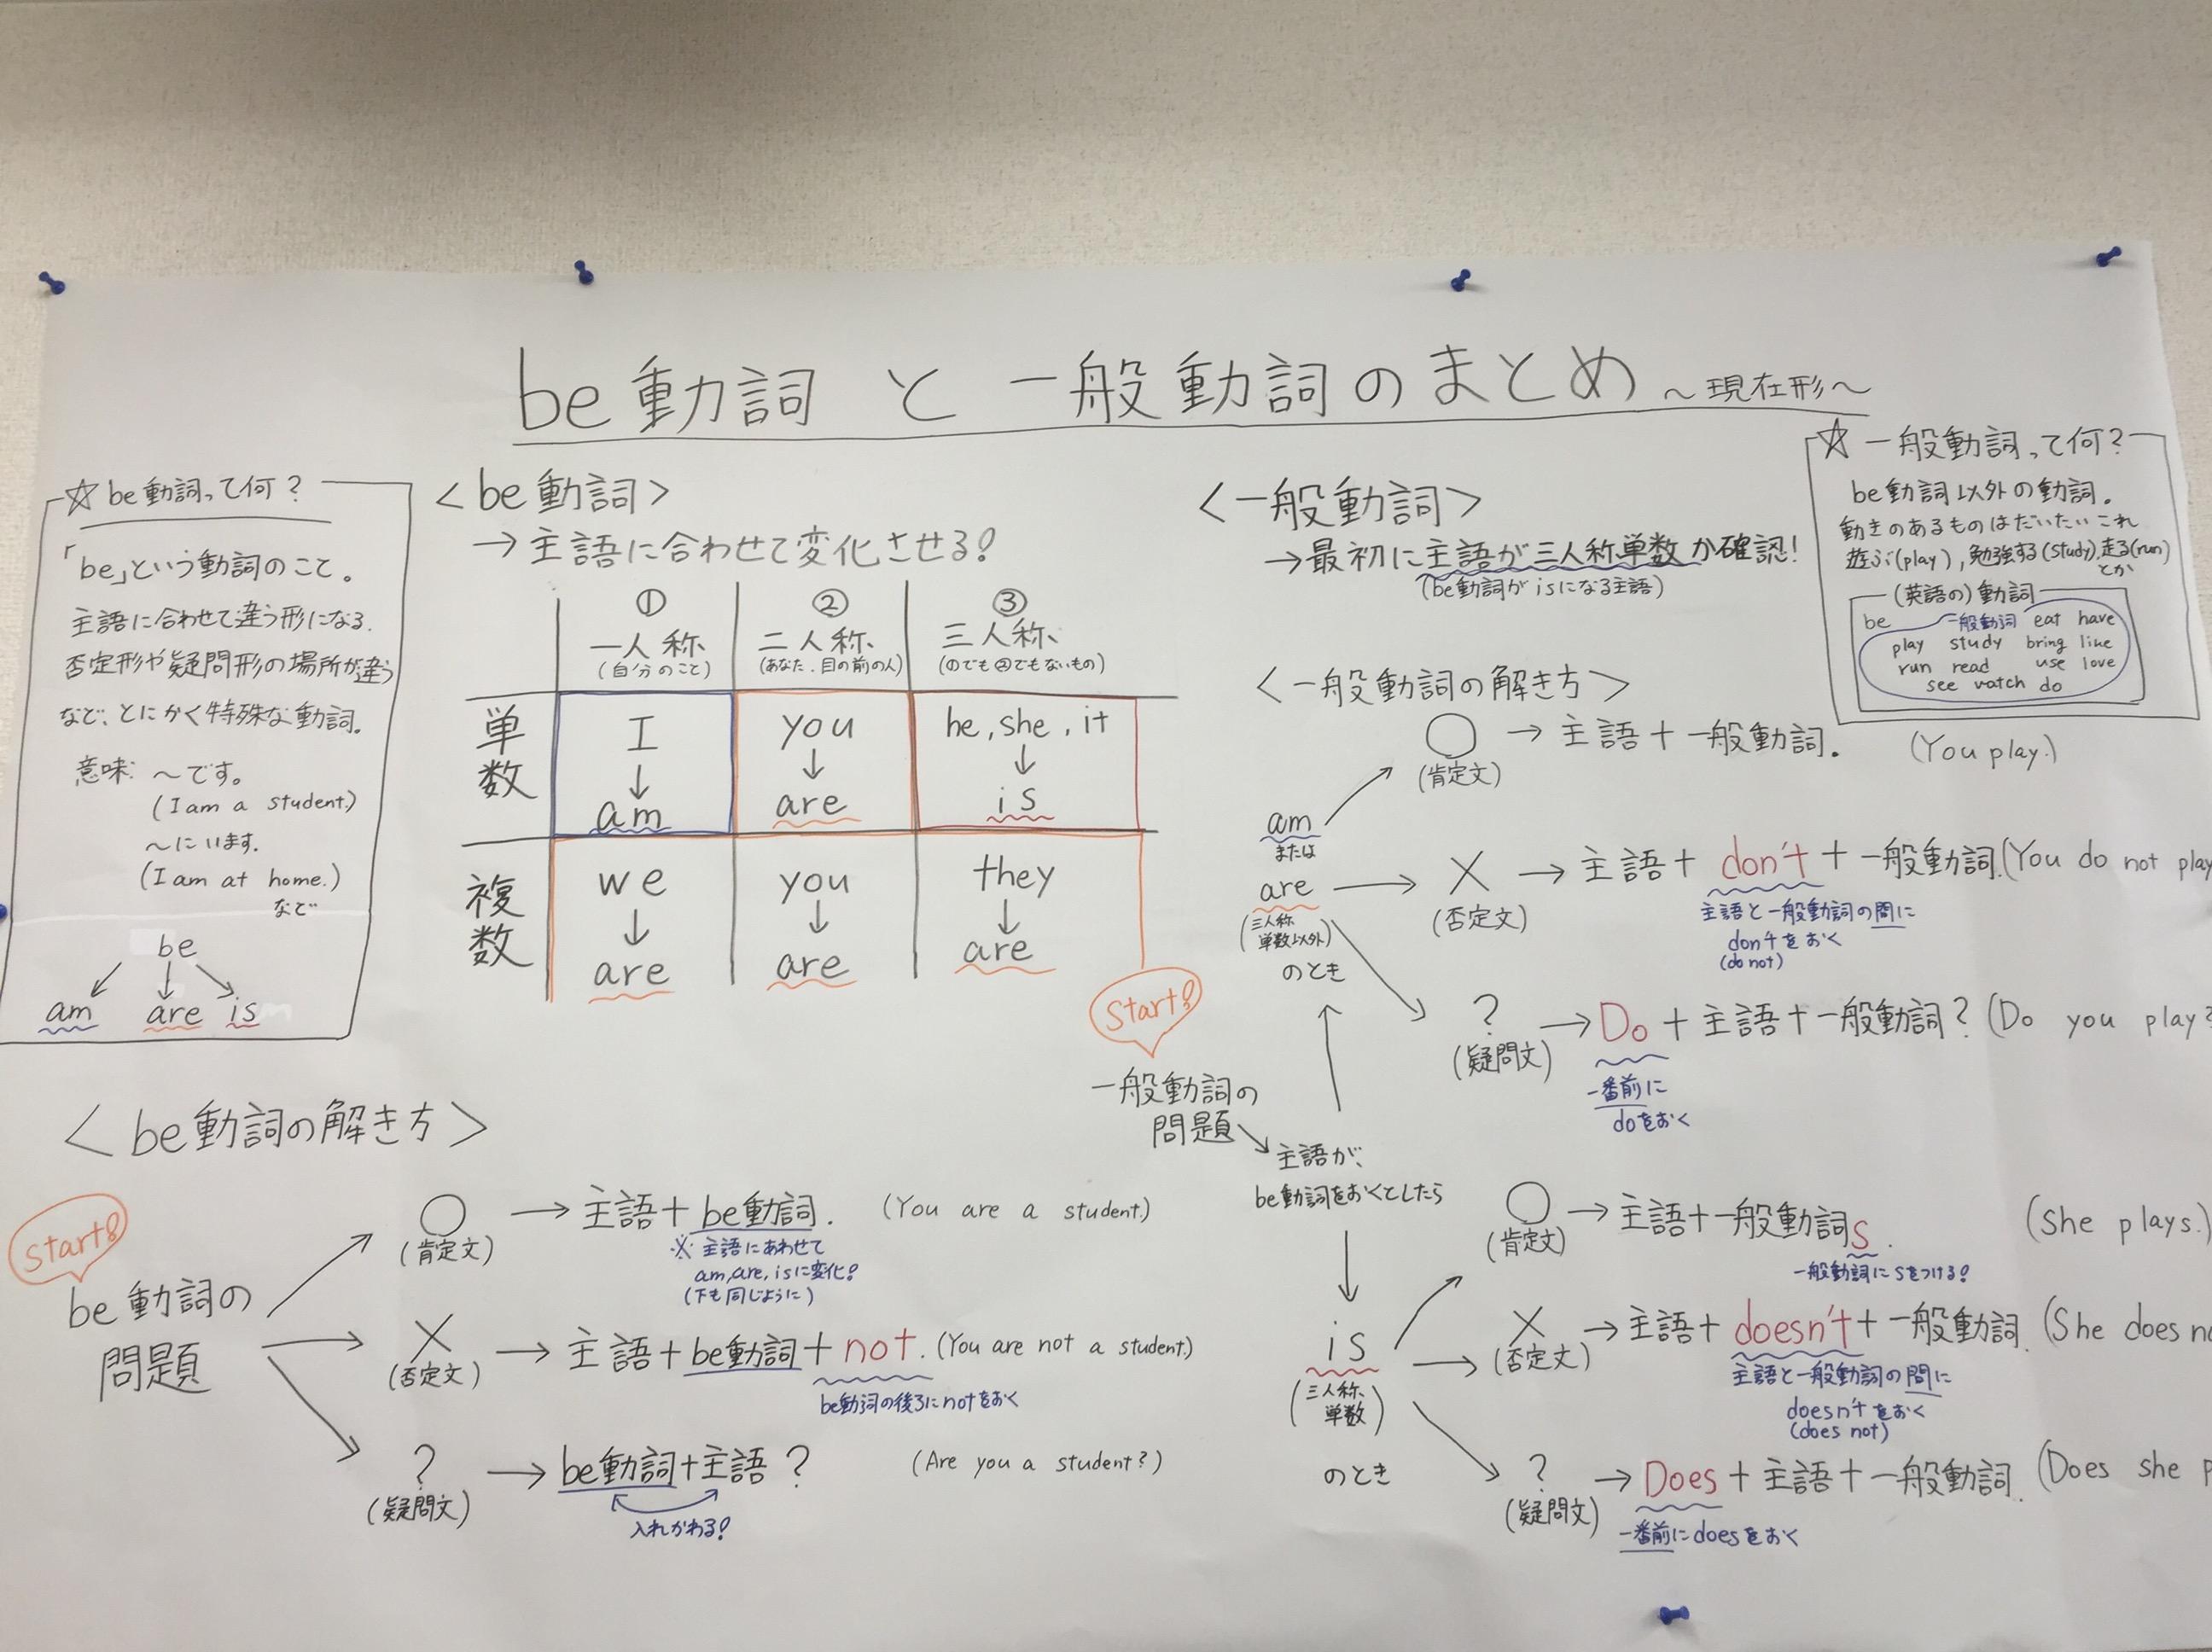 be動詞 と 一般動詞のまとめ ～現在形～
☆ be動詞って何？
「be」という動詞のこと。
主語に合わせて違う形になる.
否定形や疑問形の場所が違う
など、とにかく特殊な動詞.
意味: ～です。
(I am a student.)
～にいます.
(I am at home.)
など
be
↙ ↓ ↘
am are is
＜be動詞＞
→ 主語に合わせて変化させる!
① ② ③
一人称 二人称 三人称
(自分のこと) (あなた.目の前の人) (①でも②でもないもの)
単数 I you he, she, it
↓ ↓ ↓
am are is
複数 we you they
↓ ↓ ↓
are are are
＜be動詞の解き方＞
Start!
be動詞の
問題
○ → 主語+be動詞. (You are a student.)
(肯定文)
※ 主語にあわせて
am,are,isに変化!
(下も同じように)
× → 主語+be動詞+not. (You are not a student.)
(否定文)
be動詞の後ろにnotをおく
? → be動詞+主語? (Are you a student?)
(疑問文)
入れかわる!
＜一般動詞＞
→最初に主語が三人称単数か確認!
(be動詞がisになる主語)
☆ 一般動詞って何？
be動詞以外の動詞.
動きのあるものはだいたいこれ
遊ぶ(play), 勉強する(study), 走る(run)
とか
(英語の)動詞
be 一般動詞 eat have
play study bring like
run read use love
see watch do
＜一般動詞の解き方＞
Start!
一般動詞の
問題
主語が、
be動詞をおくとしたら
am
または
are
(三人称
単数以外)
のとき
○ → 主語+一般動詞. (You play.)
(肯定文)
× → 主語+don't+一般動詞.(You do not play
(否定文)
主語と一般動詞の間に
don'tをおく
(do not)
? → Do+主語+一般動詞? (Do you play?
(疑問文)
一番前に
doをおく
is
(三人称
単数)
のとき
○ → 主語+一般動詞s. (She plays.)
(肯定文)
一般動詞にsをつける!
× → 主語+doesn't+一般動詞. (She does
(否定文)
主語と一般動詞の間に
doesn'tをおく
(does not)
? → Does+主語+一般動詞. (Does she
(疑問文)
一番前にdoesをおく